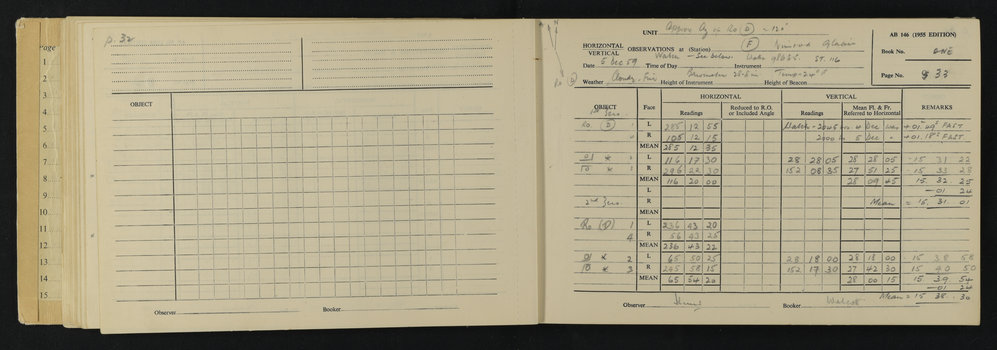 Page
1
2
3
4
5
6
7
8
9
10
11
12
13
14
15
p. 32
OBJECT
Observer
Booker
UNIT Approx Az = Ro (D) = 120°
AB 146 (1955 EDITION)
HORIZONTAL
VERTICAL OBSERVATIONS at (Station) (F) Nimrod Glacier
Book No. ONE
Watch - See below. ST. 116
Date 5 Dec 59 Time of Day Instrument
Page No. 33
Weather Cloudy, Fine Height of Instrument Height of Beacon
HORIZONTAL VERTICAL
OBJECT Face Readings Reduced to R.O. or Included Angle Readings Mean Fl. & Fr. Referred to Horizontal REMARKS
1st Zero
Ro (D) 1 L 285 12 55 Watch - 2045 4 Dec was + 01 49 FAST
R 105 12 15 2000 5 Dec " + 01 18 FAST
MEAN 285 12 35
* L 116 17 30 28 28 05 28 28 05 - 15 31 22
* R 296 22 30 152 08 35 27 51 25 - 15 33 28
MEAN 116 20 00 28 09 45 15 32 25
L - 01 24
2nd Zero R Mean = 15 31 01
MEAN
Ro (D) 1 L 236 43 20
4 R 56 43 25
MEAN 236 43 22
* 2 L 65 50 25 28 18 00 28 18 00 - 15 38 58
* 3 R 245 58 15 152 17 30 27 42 30 - 15 40 50
MEAN 65 54 20 28 00 15 15 39 54
- 01 24
Mean = 15 38 30
Observer Booker Walcott